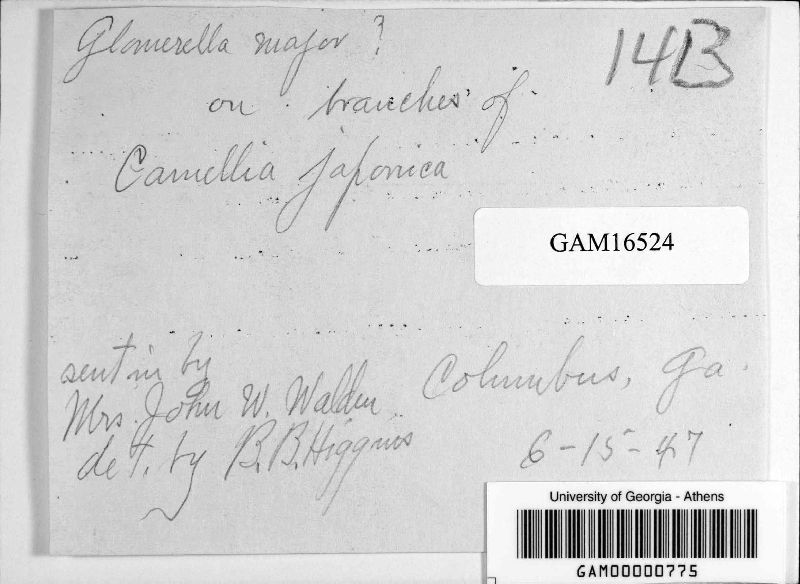 Glomerella major ?
14B
on branches of
Camellia japonica
GAM16524
sent in by
Mrs. John W. Walden
det. by B.B. Higgins
Columbus, Ga.
6-15-47
University of Georgia - Athens
GAM00000775